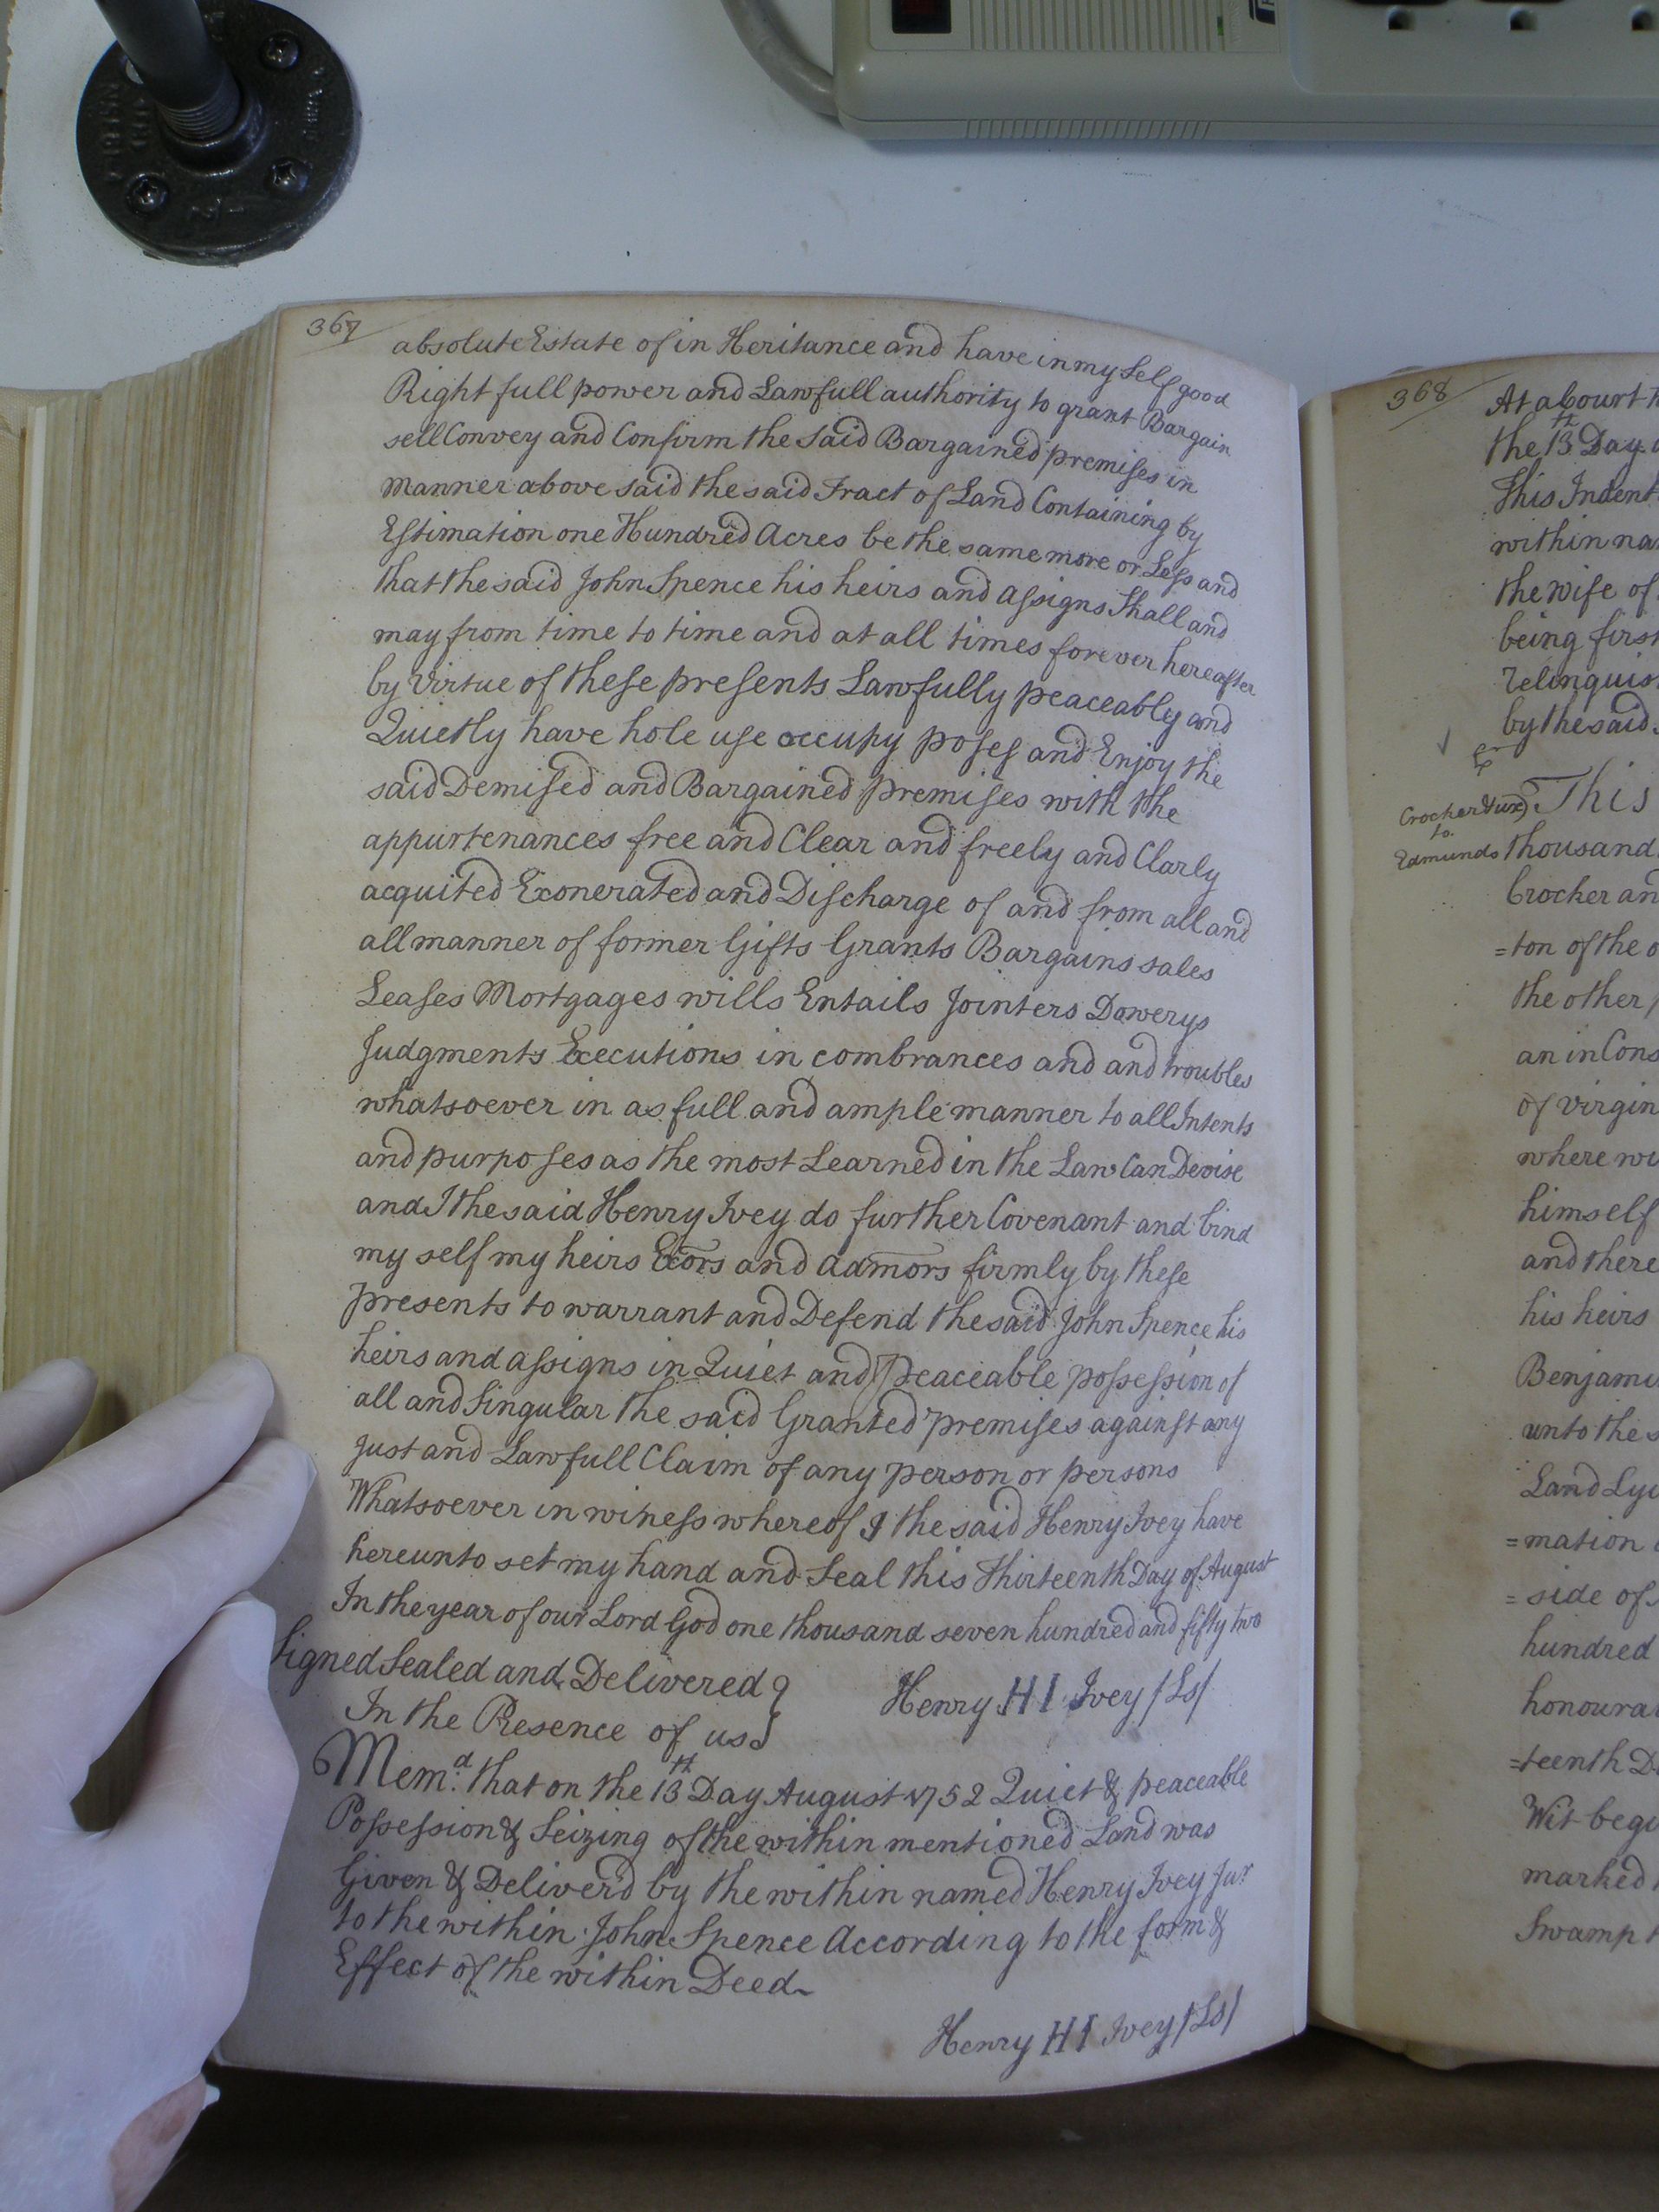 367
absolute Estate of in Heritance and have in my Self good
Right full power and Lawfull authority to grant Bargain
sell Convey and Confirm the Said Bargained premises in
manner above said the said Tract of Land Containing by
Estimation one Hundred Acres be the same more or Less and
that the said John Spence his heirs and assigns Shall and
may from time to time and at all times forever hereafter
by Virtue of these presents Lawfully peaceably and
Quietly have hole use occupy poses and Enjoy the
said Demised and Bargained premises with the
appurtenances free and Clear and freely and Clarly
acquited Exonerated and Discharge of and from all and
all manner of former Gifts Grants Bargains sales
Leases Mortgages wills Entails Jointers Dowerys
Judgments Executions in combrances and and troubles
whatsoever in as full and ample manner to all Intents
and purposes as the most Learned in the Law Can Devise
and I the said Henry Ivey do further Covenant and bind
my self my heirs Exors and admors firmly by these
presents to warrant and Defend the said John Spence his
heirs and assigns in Quiet and Peaceable possession of
all and Singular the said Granted premises against any
just and Lawfull Claim of any person or persons
Whatsoever in witness whereof I the said Henry Ivey have
hereunto set my hand and Seal this Thirteenth Day of August
In the year of our Lord God one thousand seven hundred and fifty two
Signed Sealed and Delivered }
In the Presence of us }
Henry HI Ivey /Ls/
Mem.d that on the 13th Day August 1752 Quiet & peaceable
Possession & Seizing of the within mentioned Land was
Given & Deliver'd by the within named Henry Ivey Jur
to the within John Spence According to the form &
Effect of the within Deed
Henry HI Ivey /Ls/
368
At a Court
the 13th Day
This Indent
within na
the wife of
being first
relinquis
by the said
Crocker & ux)
to
Edmunds
This
thousand
Crocker an
=ton of the
the other
an in Cons
of virgin
where wi
himself
and there
his heirs
Benjami
unto the s
Land Lyi
=mation
=side of
hundred
honoura
=teenth D
Wit begi
marked
Swamp